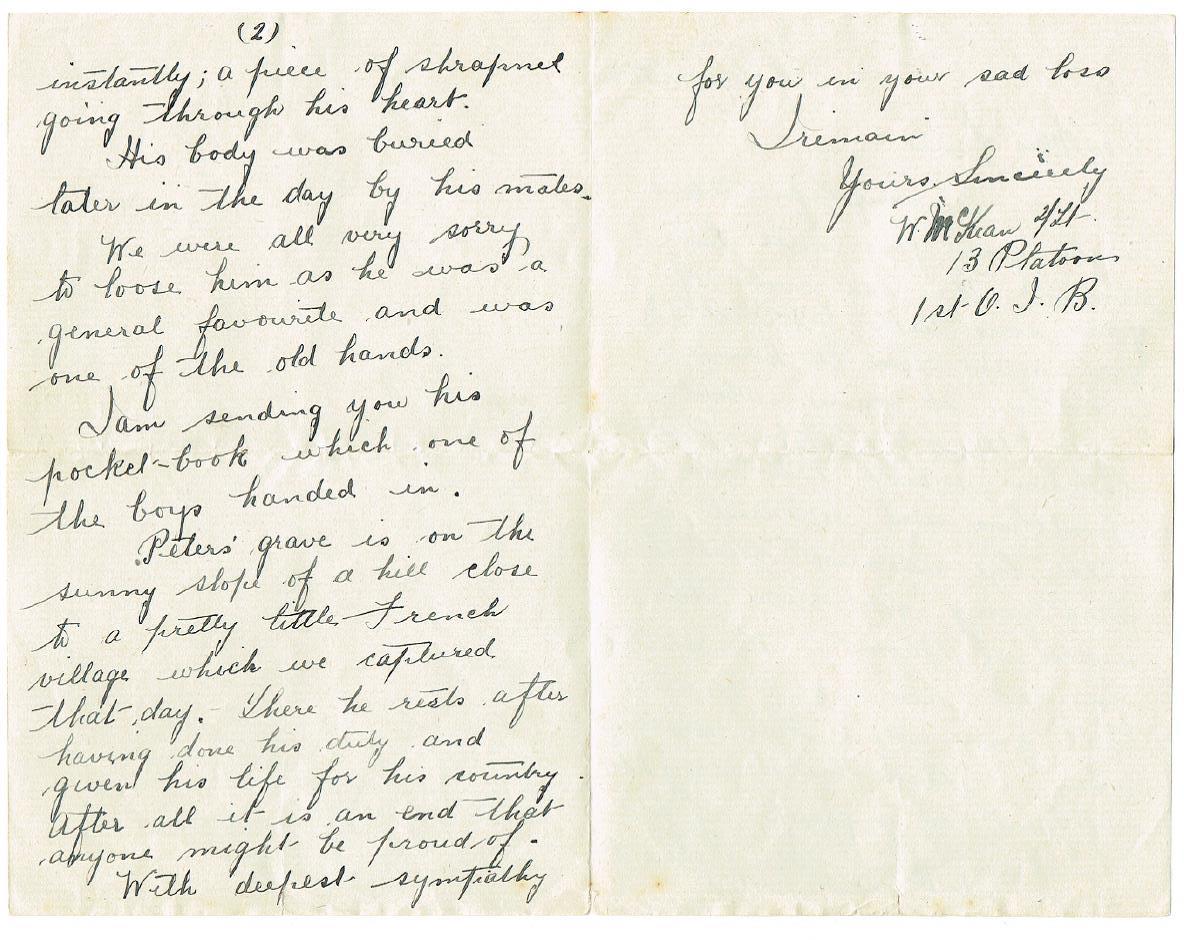 (2)
instantly; a piece of shrapnel
going through his heart.
His body was buried
later in the day by his mates.
We were all very sorry
to loose him as he was a
general favourite and was
one of the old hands.
I am sending you his
pocket-book which one of
the boys handed in.
Peters' grave is on the
sunny slope of a hill close
to a pretty little French
village which we captured
that day. There he rests after
having done his duty and
given his life for his country.
After all it is an end that
anyone might be proud of.
With deepest sympathy
for you in your sad loss
I remain
Yours Sincerely
W. McKean 2/Lt.
13 Platoon
1st O. I. B.